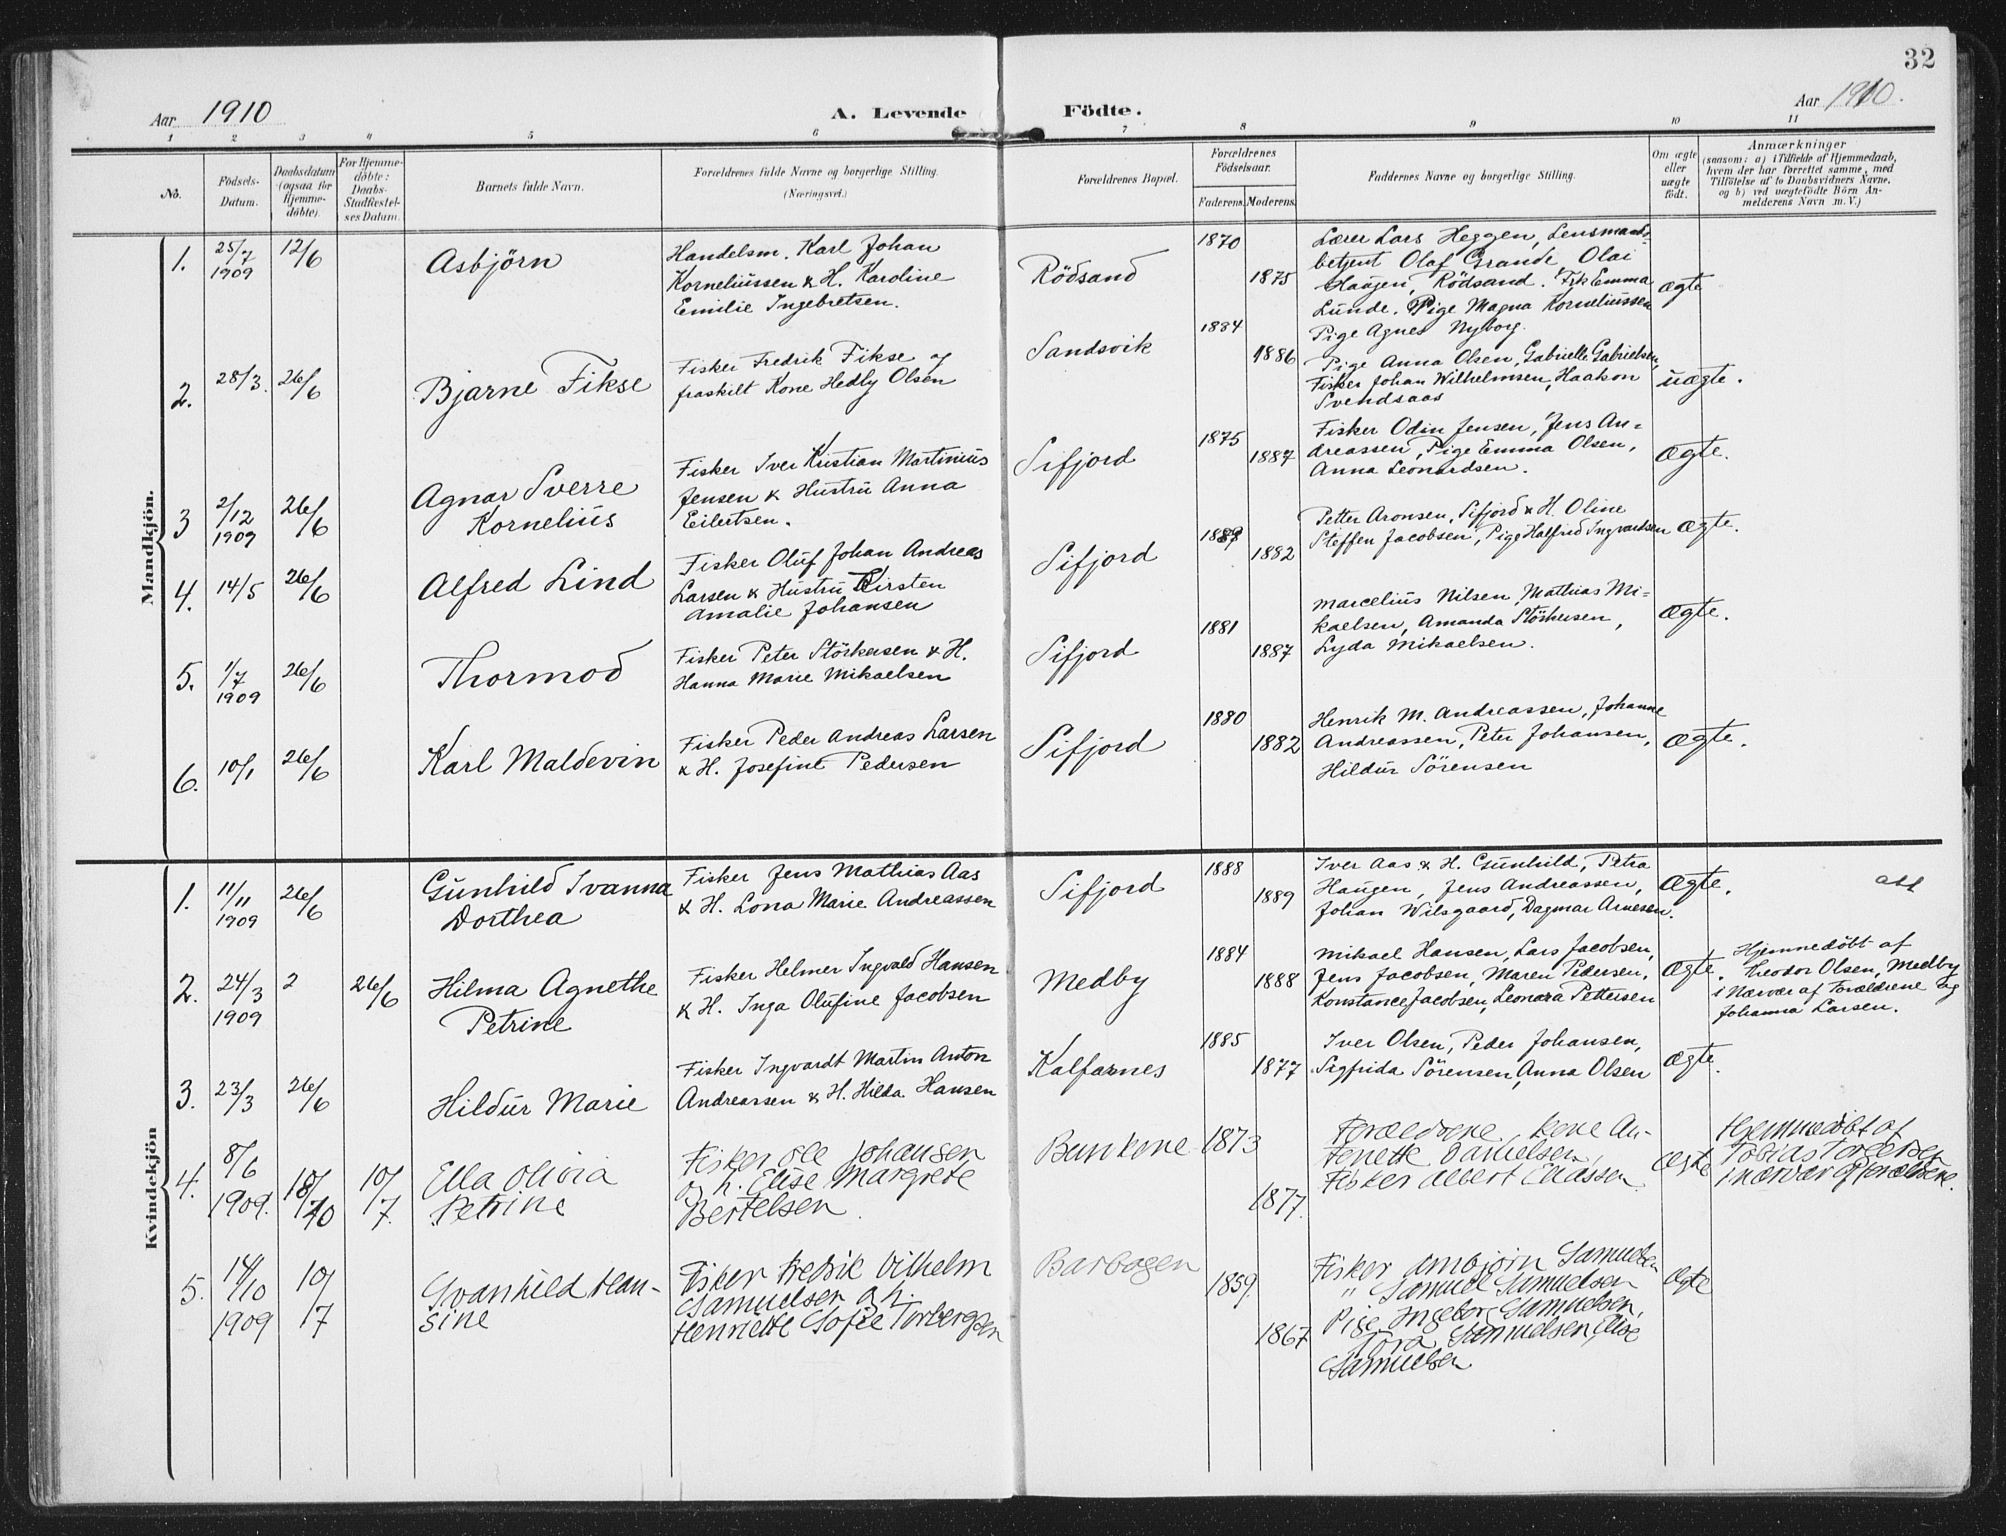 32
Aar 1910
A. Levende Födte.
Aar 1910.
1 2 3 4 5 6 7 8 9 10 11
No.
Födsels-
Datum.
Daabsdatum
(ogsaa for
Hjemme-
döbte).
For Hjemme-
döbte:
Daabs-
Stadfestel-
ses Datum.
Barnets fulde Navn.
Forældrenes fulde Navne og borgerlige Stilling.
(Næringsvei.)
Forældrenes Bopæl.
Forældrenes
Födselsaar.
Faderens. Moderens.
Faddernes Navne og borgerlige Stilling.
Om ægte
eller
uægte
födt.
Anmærkninger
(saasom: a) i Tilfælde af Hjemmedaab,
hvem der har forrettet samme, med
Tilföielse af to Daabsvidners Navne.
og b) ved uægtefödte Börn An-
melderens Navn m. V.)
Mandkjön.
1. 25/7 1909 12/6
Asbjørn
Handelsm. Karl Johan
Korneliussen & H. Karoline
Emilie Ingebretsen.
Rödsand
1870
1875
Lærer Lars Heggen, Lensmands-
betjent Olaf Grande Olai
Haugen, Rödsand. Frk Emma
Lunde. Pige Magna Korneliussen
Pige Agnes Nyborg.
ægte
2. 28/3. 26/6
Bjarne Fikse
Fisker Fredrik Fikse og
fraskilt Kone Hedly Olsen
Sandsvik
1884
1886
Pige Anna Olsen, Gabrielle Gabrielsen,
Fisker Johan Wilhelmsen, Haakon
Svendsaas
uægte.
3 2/12 1909 26/6
Agnar Sverre
Kornelius
Fisker Iver Kristian Martinius
Jensen & Hustru Anna
Eilertsen.
Sifjord
1875
1887
Fisker Odin Jensen, Jens An=
dreassen, Pige Emma Olsen,
Anna Leonardsen.
Ægte.
4. 14/5 26/6
Alfred Lind
Fisker Oluf Johan Andreas
Larsen & Hustru Kirsten
Amalie Johansen
Sifjord
1882
Petter Aronsen, Sifjord & H. Oline
Steffen Jacobsen, Pige Halfrid Ingvardsen
Ægte.
5. 1/7 1909 26/6
Thormod
Fisker Peter Störkersen & H.
Hanna Marie Mikaelsen
Sifjord
1881
1887
Marcelius Nilsen Mathias Mi=
kaelsen, Amanda Störkersen,
Lyda Mikaelsen.
Ægte.
6. 10/1 26/6
Karl Maldevin
Fisker Peder Andreas Larsen
& H. Josefine Pedersen
Sifjord
1880
1882
Henrik M. Andreassen, Johanne
Andreassen, Peter Johansen,
Hildur Sörensen
Ægte.
Kvindekjön
1. 11/11 1909 26/6
Gunhild Ivanna
Dorthea
Fisker Jens Mathias Aas
& H. Lona Marie Andreassen
Sifjord
1888
1889
Iver Aas & H. Gunhild, Petra
Haugen, Jens Andreassen,
Johan Wilsgaard, Dagmar Arnesen.
Ægte.
att
2. 24/3 1909 2 26/6
Hilma Agnethe
Petrine
Fisker Helmer Ingvald Hansen
& H. Inga Olufine Jacobsen
Medby
1884
1888
Mikael Hansen, Lars Jacobsen,
Jens Jacobsen, Maren Pedersen,
Konstance Jacobsen, Leonora Pettersen
Ægte.
Hjemmedöbt af
Theodor Olsen, Medby
i Nærvær af Forældrene og
Johanna Larsen.
3. 23/3 26/6
Hildur Marie
Fisker Ingvardt Martin Anton
Andreassen & H. Hilda Hansen
Kalfarnes
1885
1877
Iver Olsen, Peder Johansen,
Sigfrida Sörensen, Anna Olsen
Ægte.
4. 8/6 1909. 10/7
Ella Olivia
Petrine
Fisker Ole Johansen
og h. Elise Margrete
Bertelsen
Bunkene
1873
1877.
Forældrene, Kone An-
Fenette Danielsen,
Fisker Albert Eliassen
Ægte
Hjemmedöbt af
Tobias Torbergsen
i nærvær af forældrene.
5. 14/10 1909 10/7
Svanhild Han-
sine
Fisker Fredrik Vilhelm
Samuelsen o h.
Henriette Sofie Torbergsen
Barbogen
1859.
1867
Fisker Arnbjørn Samuelsen
" Samuel Samuelsen
Pige Ingeborg Samuelsen,
Tora Samuelsen, Elise
Samuelsen
Ægte